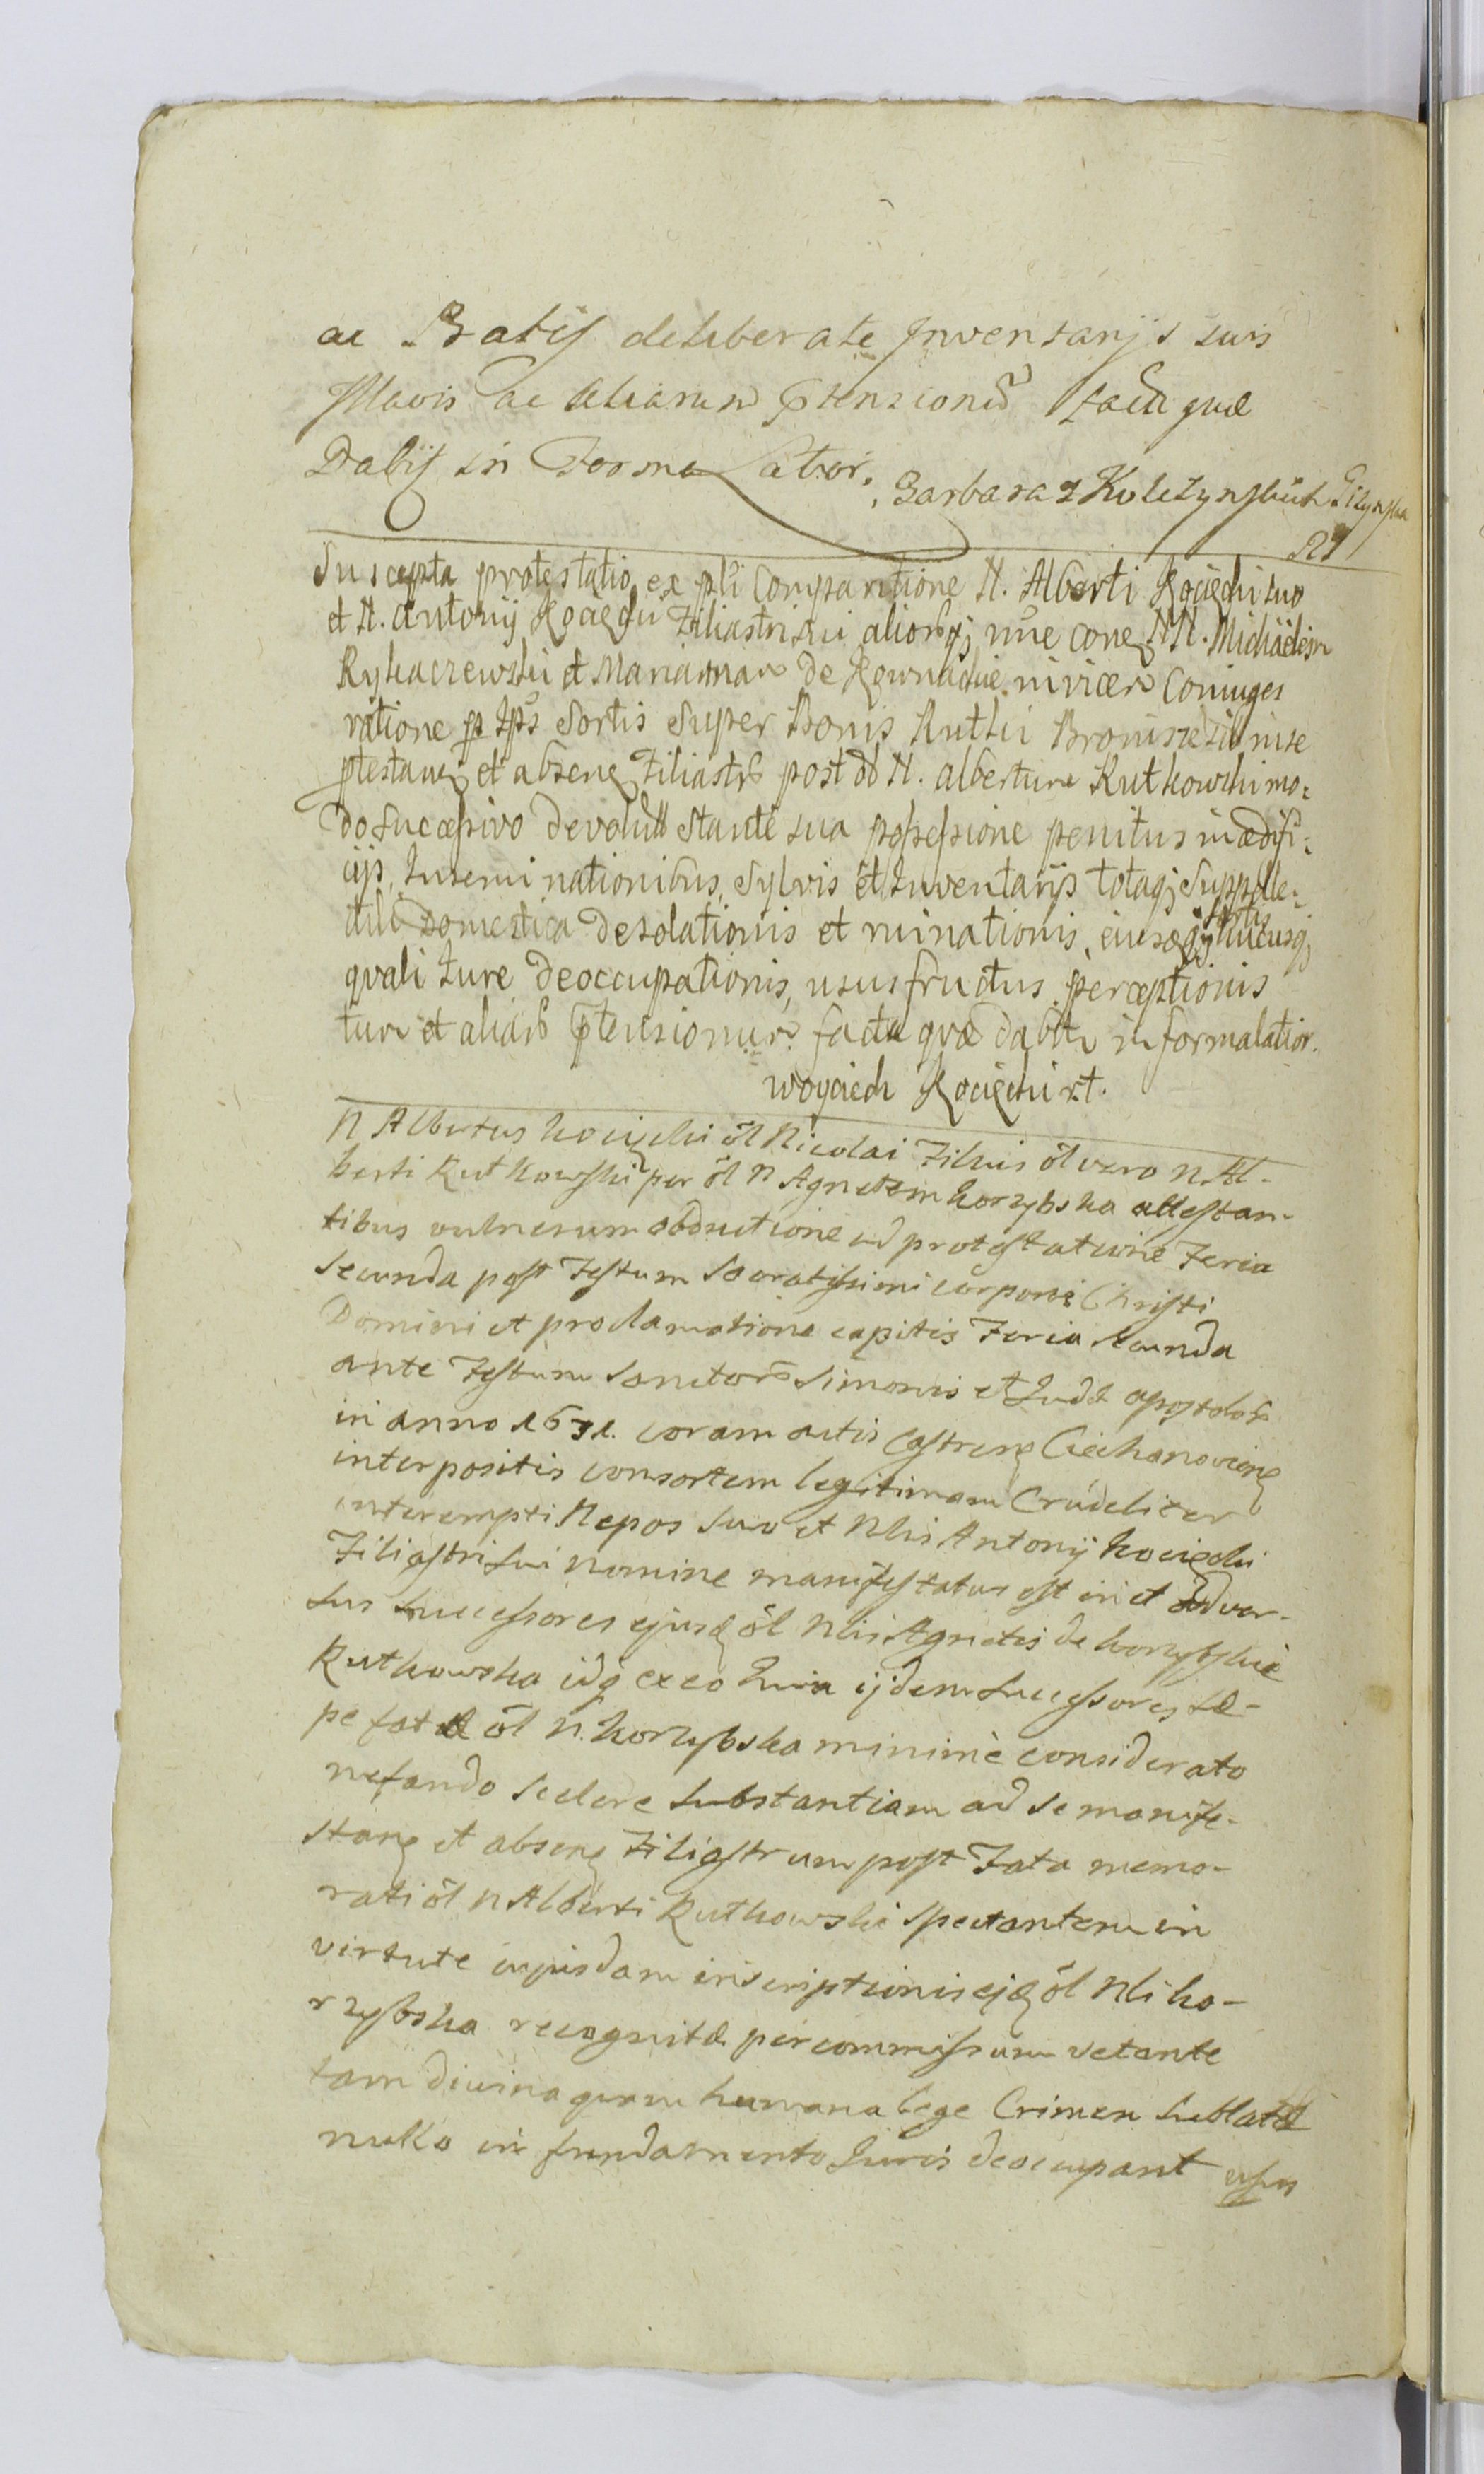 ac Batis deliberate Inventarijs suis
ac aliarum ptensionu facta quæ
Dabis in Forma Latiori.
Barbara z
Suscepta protestatio ex pti Comparitione N. Alberti Kocięcki suo
et N. Antonij Kocięcki Filiastri sui aliorbqj nŭe conę NN. Michaelem
Rykaczewski et Mariannam de Kownackie invicem Coniuges
ratione Sortis Super Bonis Rutki Broniszę
ptestanę et absenę Filiastrb post ob N. Albertum Rutkowski mo:
do sucæssivo devolutt Stante sua possessione penitus in ædifi:
cijs, Inseminationibus, Sylvis et Inventarijs totaqj Suppelle:
ctili Domestica Desolationis et ruinationis, eiusdęqj Sortis hucusqj
quali Iure Deoccupationis, ususfructus perceptionis
tum et aliarb ptensionum facta quæ dabitr in forma latior.
Woyciech Kocięcki rt.
N Albertus kocięcki ol Nicolai Filius ol vero N. Al-
berti Rutkowski per ol N Agnetem korzybska attestan-
tibus vulnerum obductione ad protestatione Feria
Secunda post Festum Sacratissimi corporis Christi
Domini et proclamatione capitis Feria Secunda
ante Festum Sanctorum Simonis et Judæ apostolor
in anno 1631. coram actis Castrenę Ciechanovienę
interpositis consortem legitimam Crudeliter
interempti Nepos suo et Nlis Antonij kocięcki
Filiastri sui nomine manifestatus est in et adver-
sus Successores ejusdę ol Nlis Agnetis de korzybskie
Rutkowska idq ex eo Quia ijdem Successores sæ-
pe fatæ ol N. korzybska minimè considerato
nefando scelere substantiam ad se manife-
stanę et absenę Filiastrum post Fata memo-
rati ol N Alberti Rutkowski spectantem in
virtute cujusdam inscriptionis ejdę ol Nli ko-
rzybska recognitæ per commissum vetante
tam divina quam humana lege Crimen sublatæ
nullo in fundamento Iuris deocupant usu